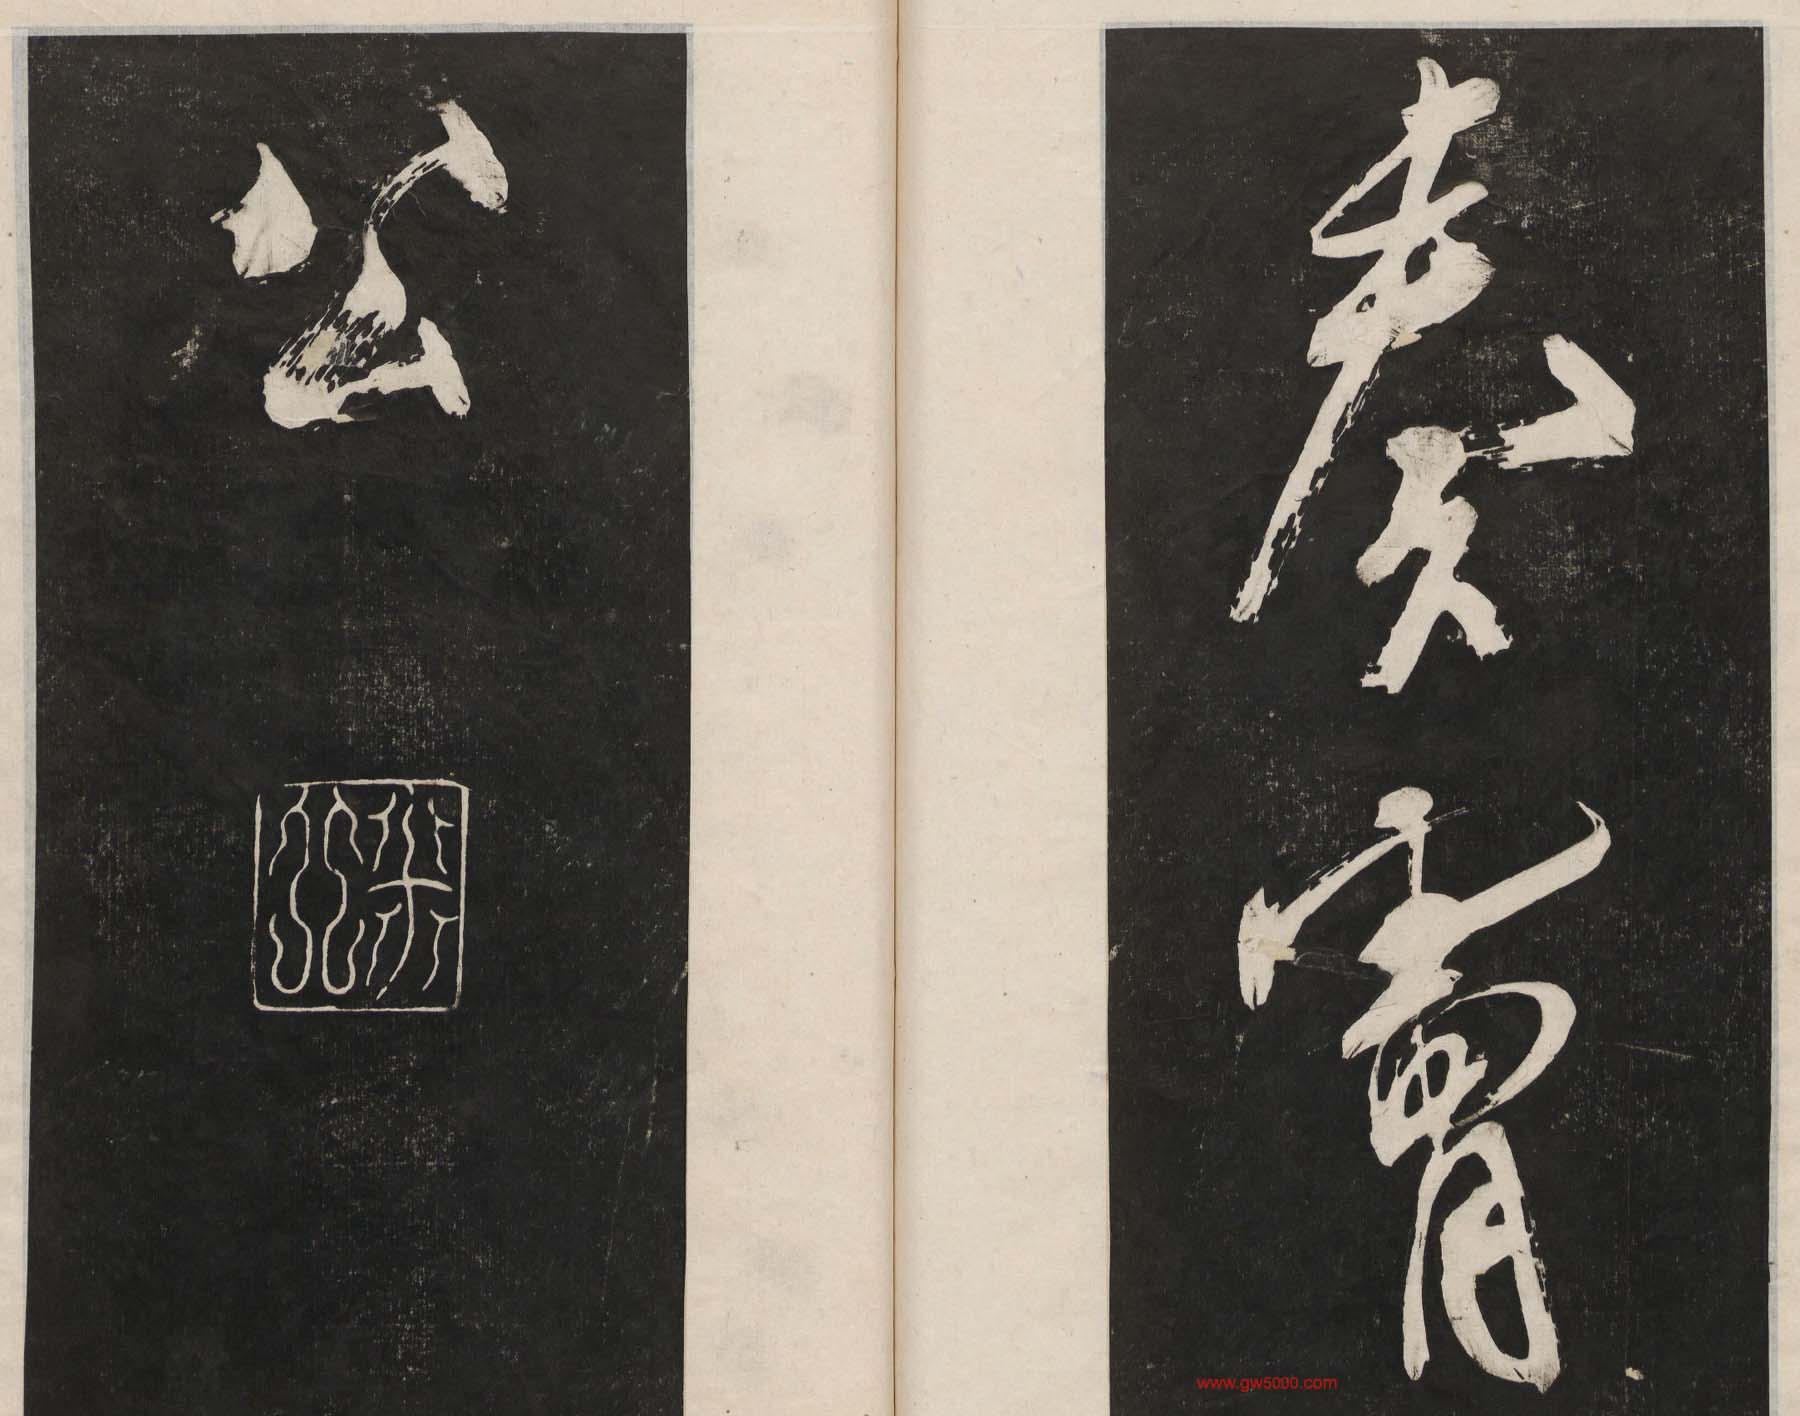 奏膚
公
www.gw5000.com